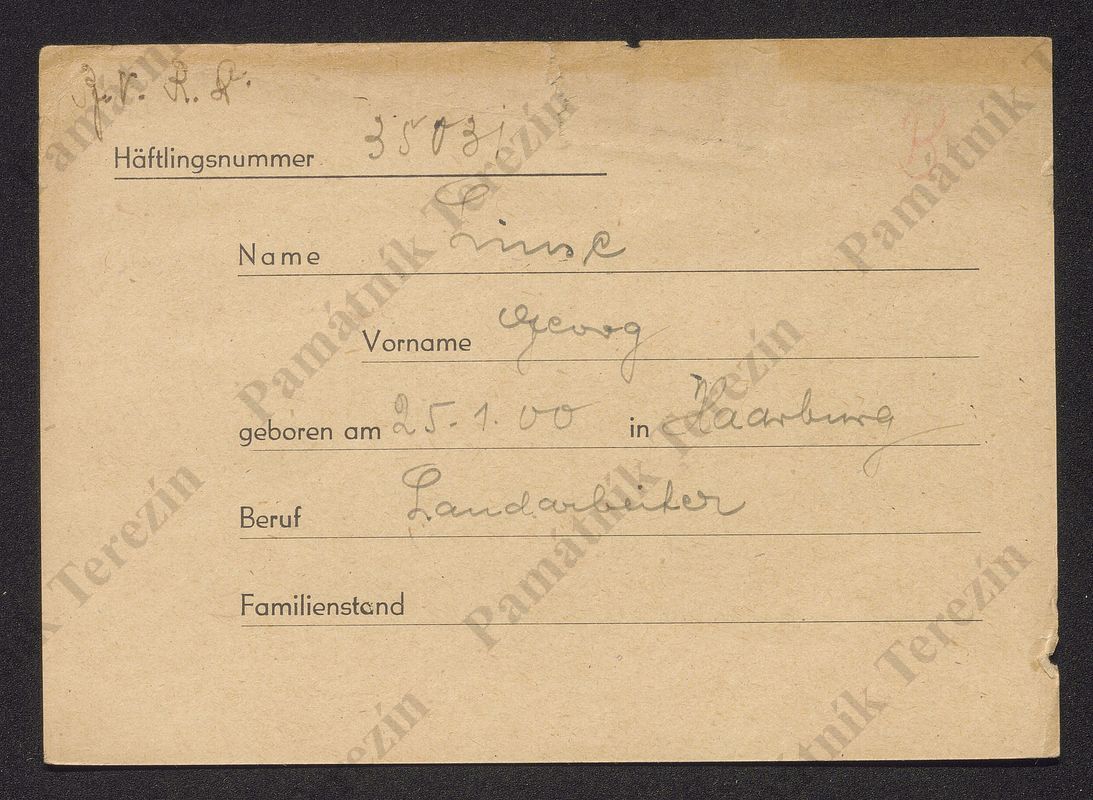 Z.v. R. D.
Häftlingsnummer 35031
Name
Vorname Georg
geboren am 25.1.00 in Haarburg
Beruf Landarbeiter
Familienstand
Památník Terezín